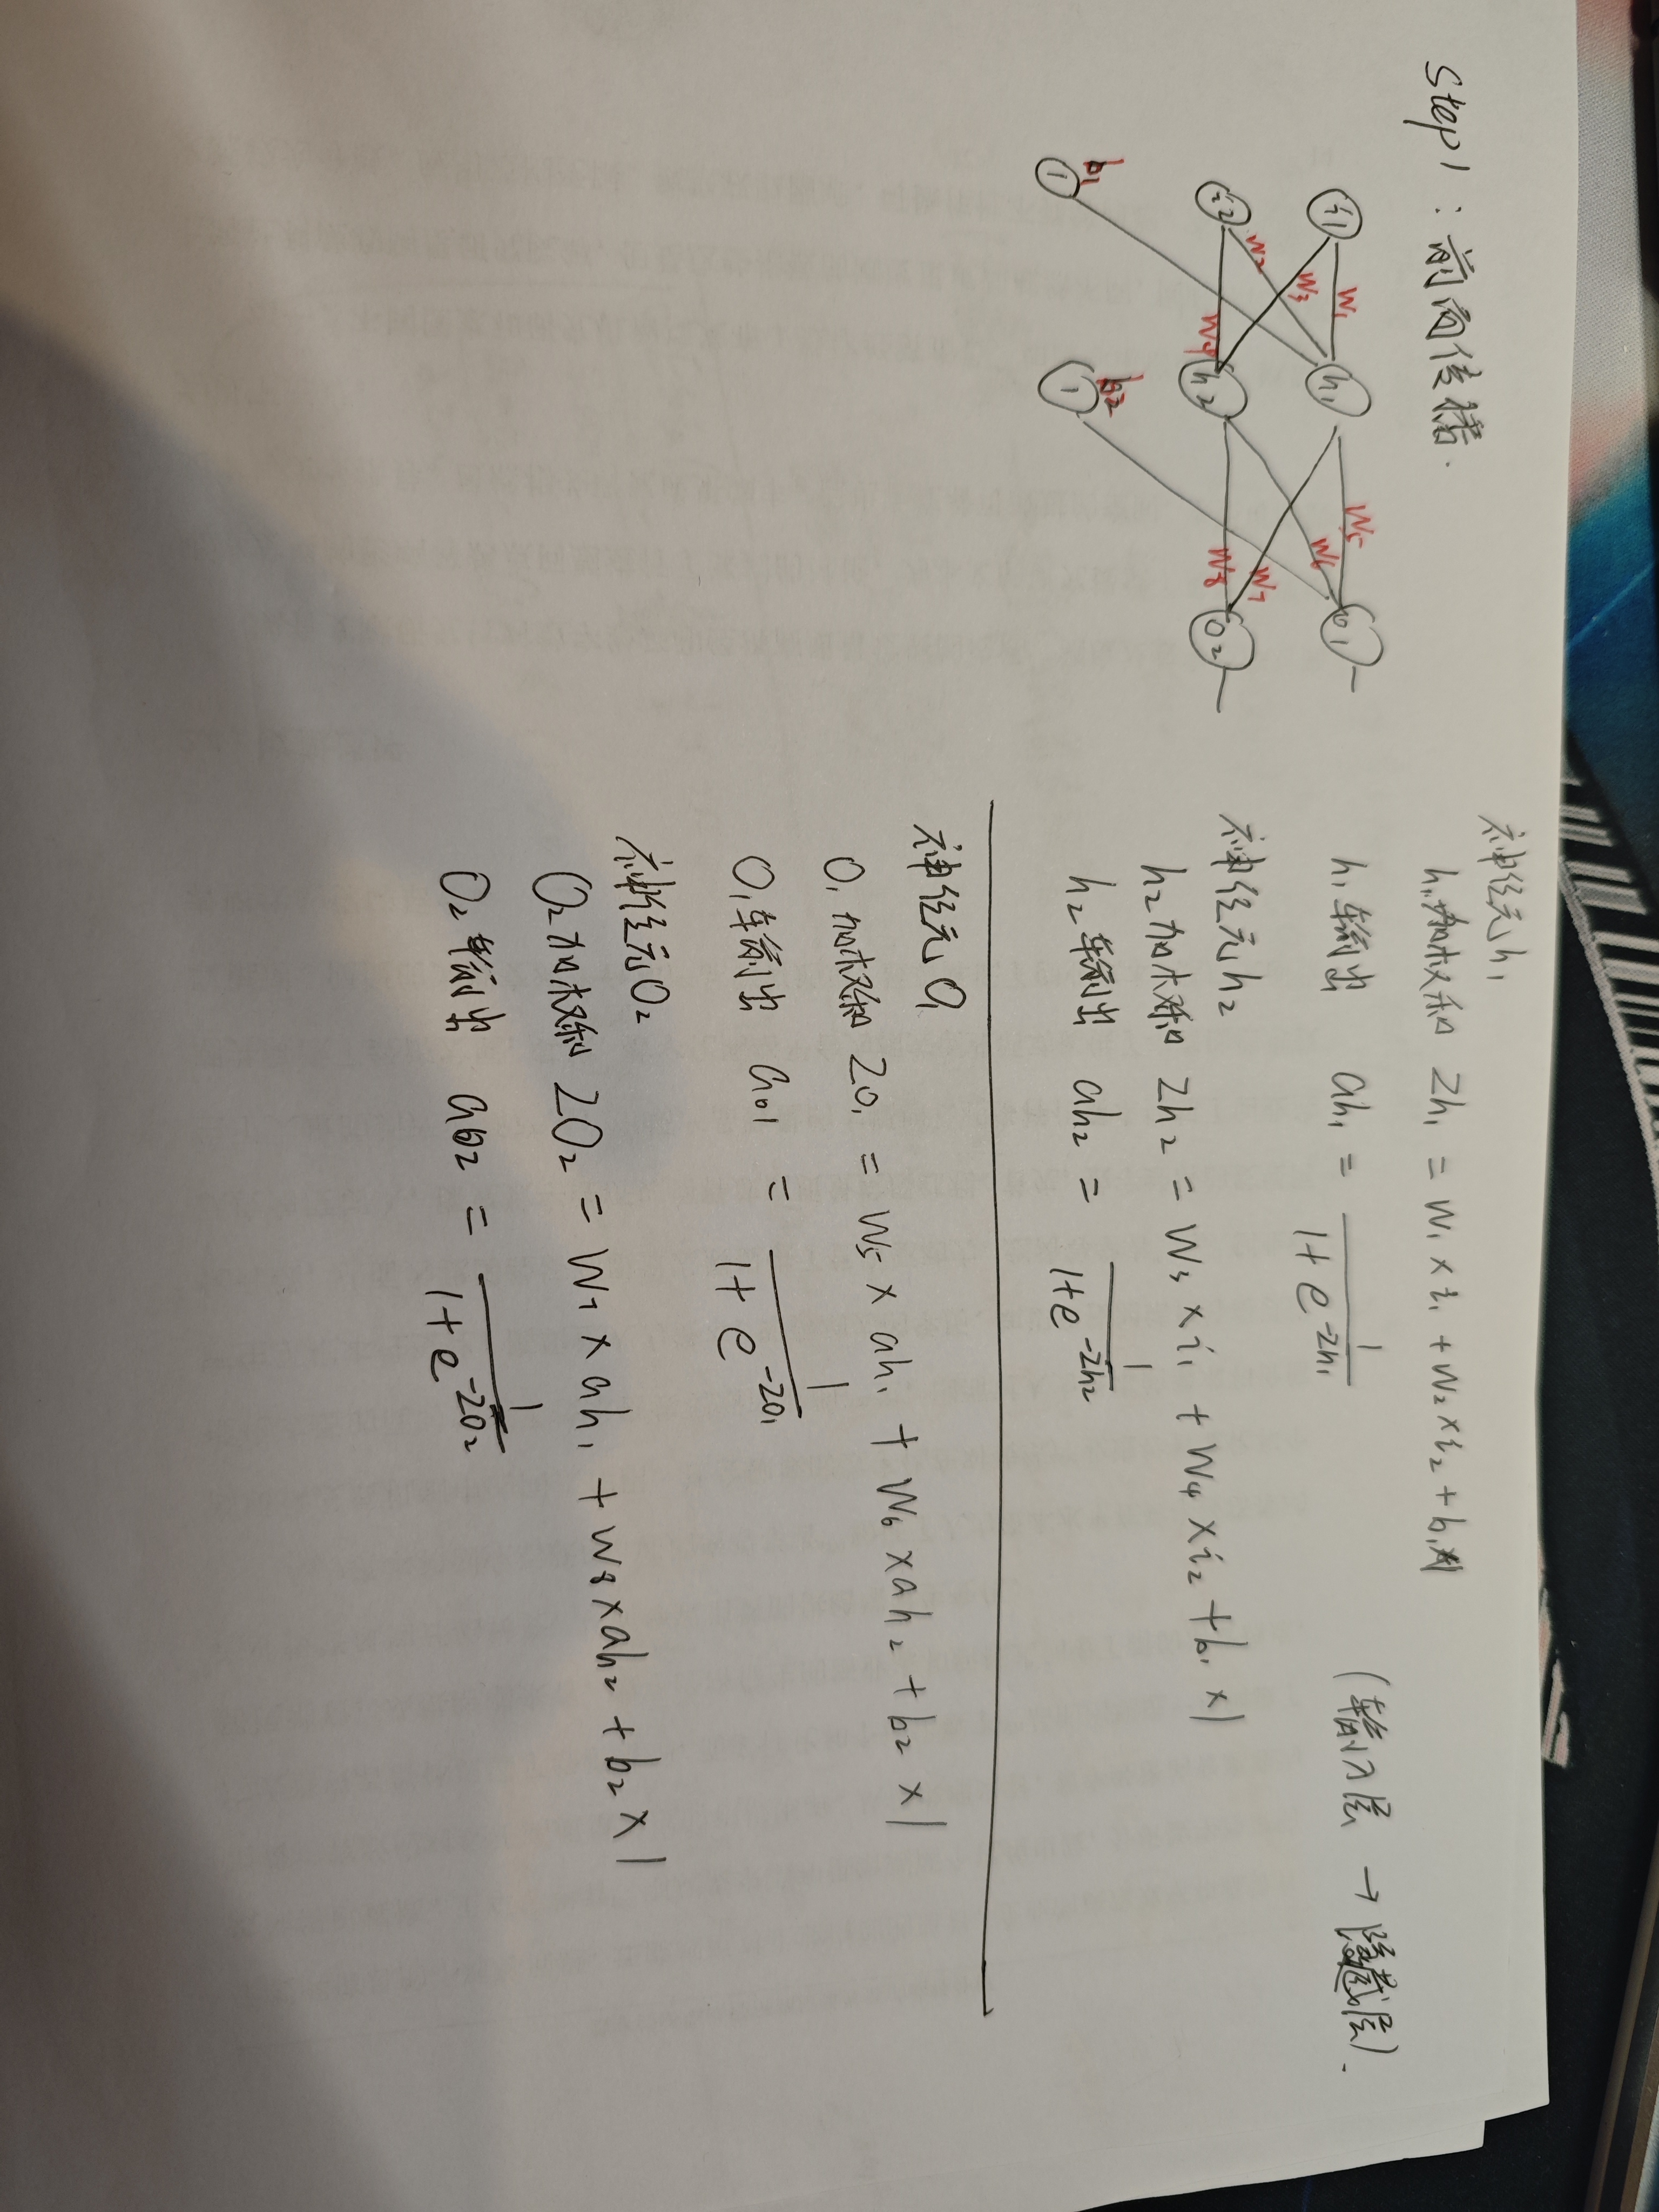 Step1:前向传播.
i1 w1 h1 w5 o1
w3 w6
w2 w7
i2 w4 h2 w8 o2
b1 b2
1 1
神经元h1
h1加权和 zh1 = w1×i1+w2×i2+b1×1
h1输出 ah1 = 1/(1+e^-zh1) (输入层 → 隐藏层).
神经元h2
h2加权和 zh2 = w3×i1+w4×i2+b1×1
h2输出 ah2 = 1/(1+e^-zh2)
神经元O1
O1加权和 zo1 = w5×ah1+w6×ah2+b2×1
O1输出 ao1 = 1/(1+e^-zo1)
神经元O2
O2加权和 zO2 = w7×ah1+w8×ah2+b2×1
O2输出 ao2 = 1/(1+e^-zo2)